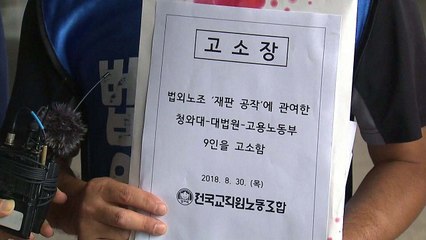 고소장
법외노조 '재판 공작'에 관여한
청와대-대법원-고용노동부
9인을 고소함
2018. 8. 30. (목)
전국교직원노동조합